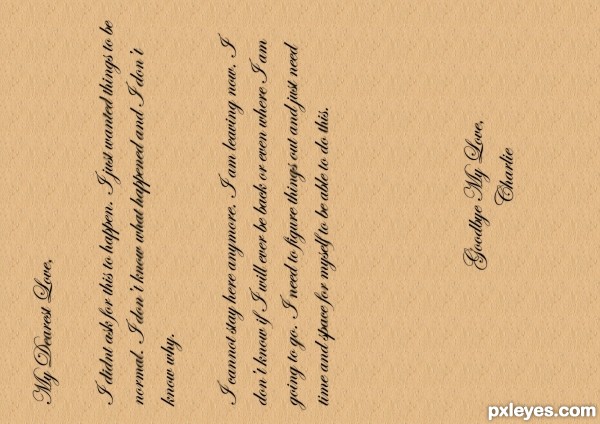 My Dearest Love,
I didnt ask for this to happen. I just wanted things to be
normal. I don't know what happened and I don't
know why.
I cannot stay here anymore. I am leaving now. I
don't know if I will ever be back or even where I am
going to go. I need to figure things out and just need
time and space for myself to be able to do this.
Goodbye My Love,
Charlie
pxleyes.com